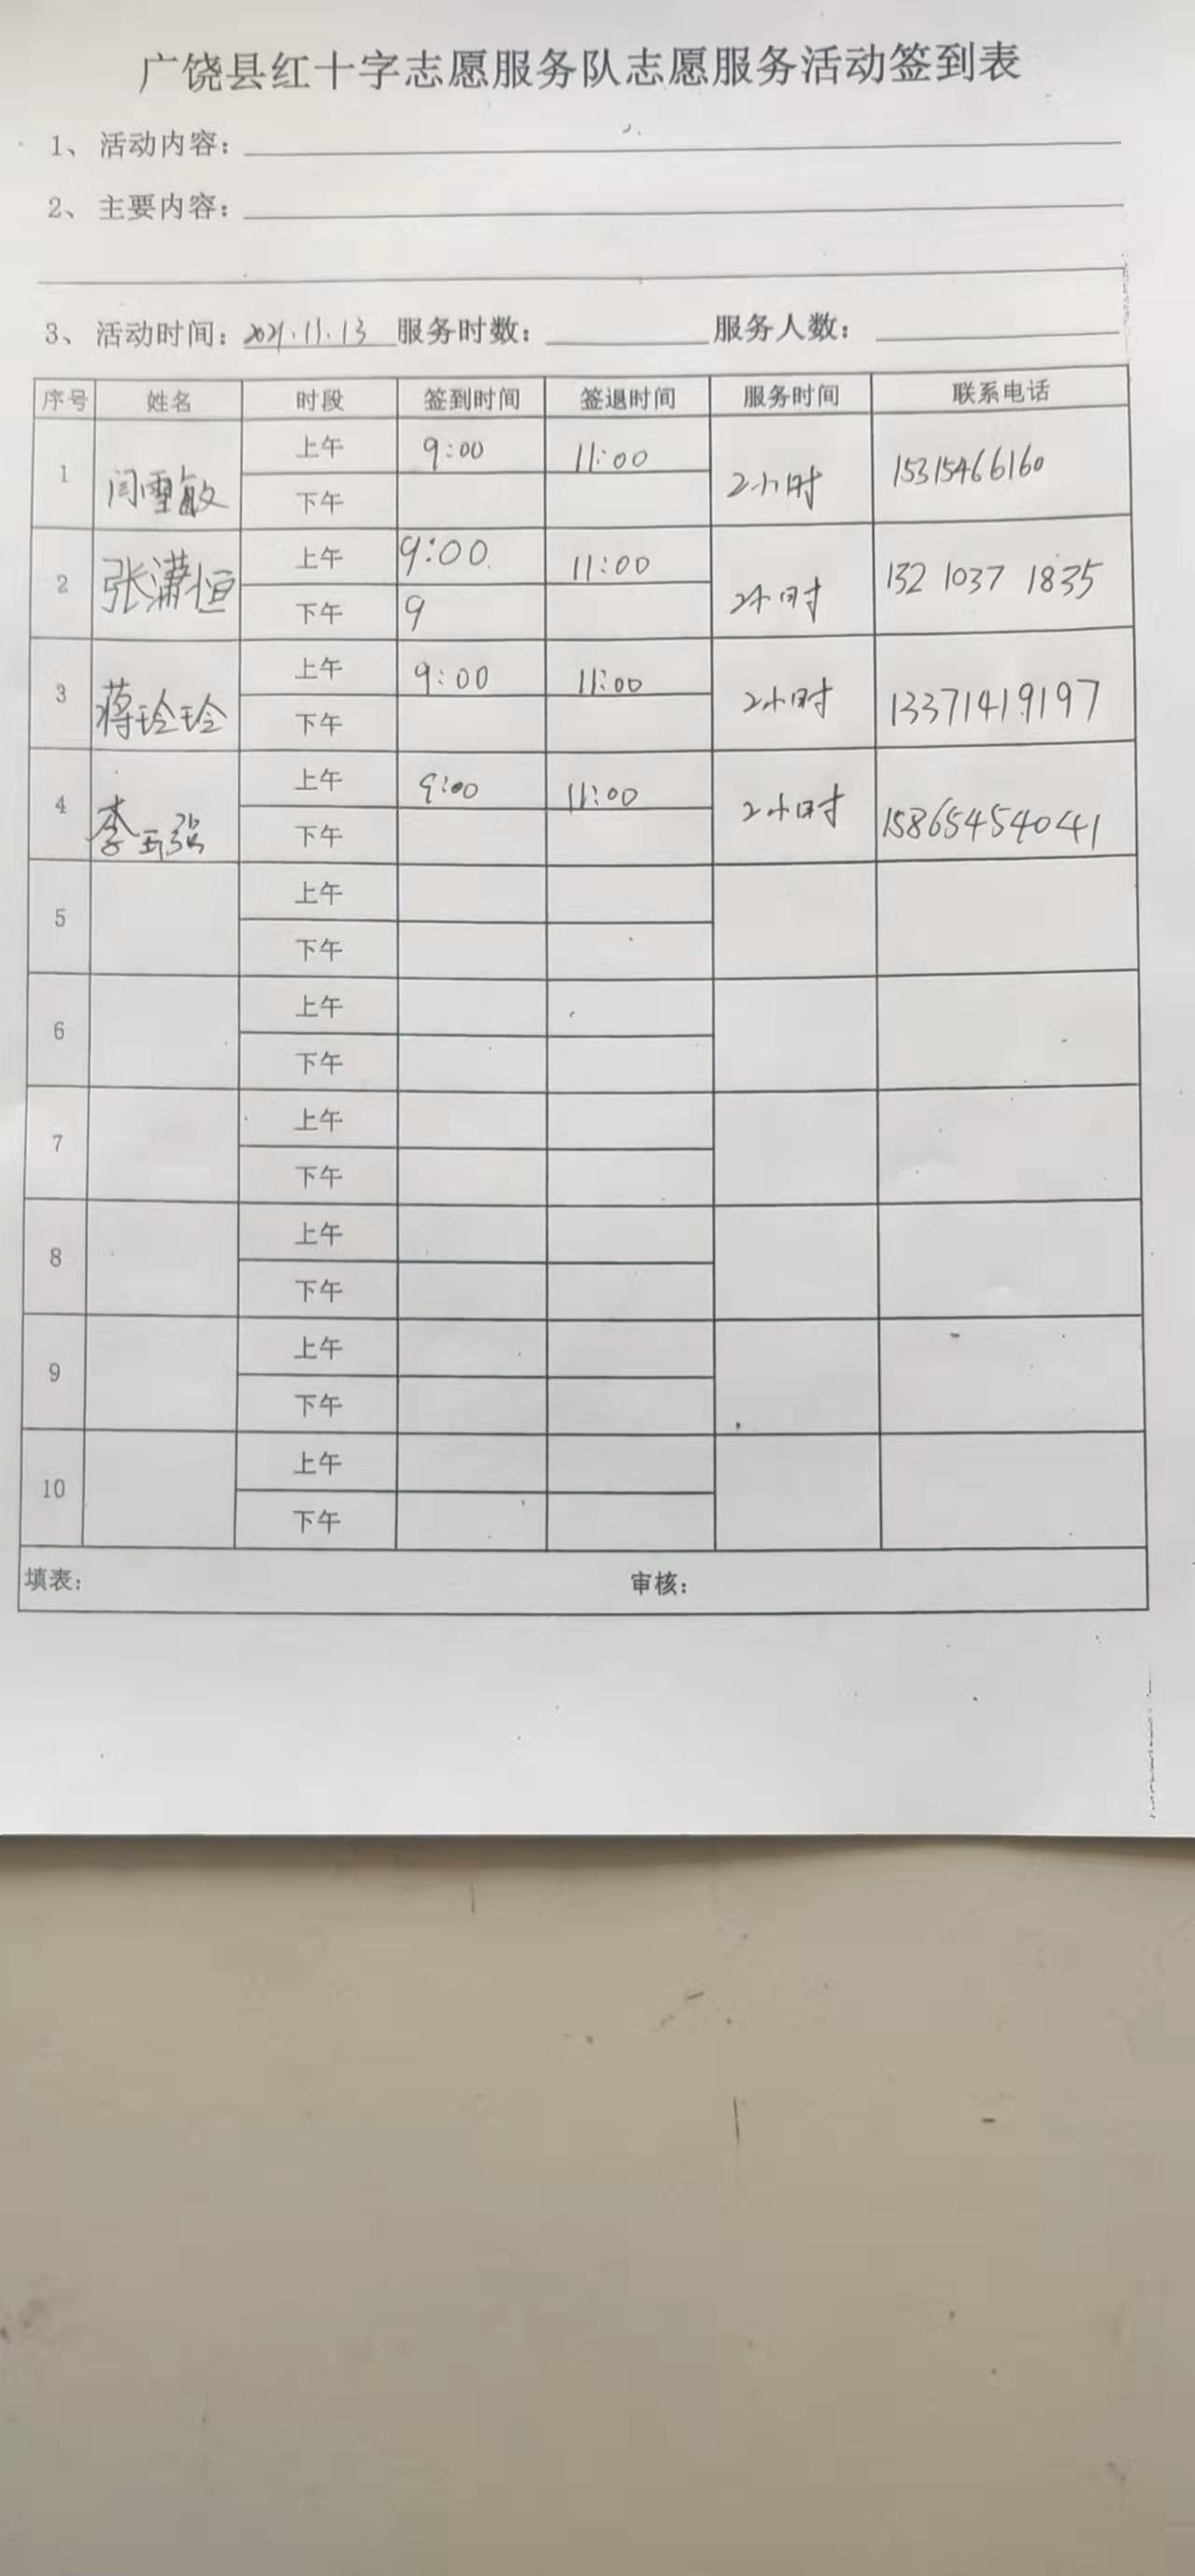 广饶县红十字志愿服务队志愿服务活动签到表
1、活动内容：
2、主要内容：
3、活动时间：2021.11.13 服务时数： 服务人数：
序号 姓名 时段 签到时间 签退时间 服务时间 联系电话
1 闫雪敏 上午 9:00 11:00 2小时 15315466160
下午
2 张潇恒 上午 9:00 11:00 2小时 132 1037 1835
下午 9
3 蒋玲玲 上午 9:00 11:00 2小时 13371419197
下午
4 李玉强 上午 9:00 11:00 2小时 15865454041
下午
5 上午
下午
6 上午
下午
7 上午
下午
8 上午
下午
9 上午
下午
10 上午
下午
填表： 审核：